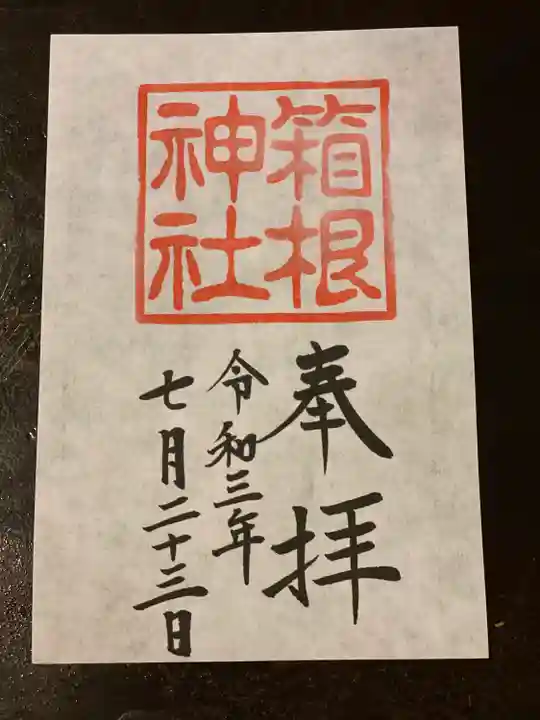 箱根
神社
奉拝
令和三年
七月二十三日